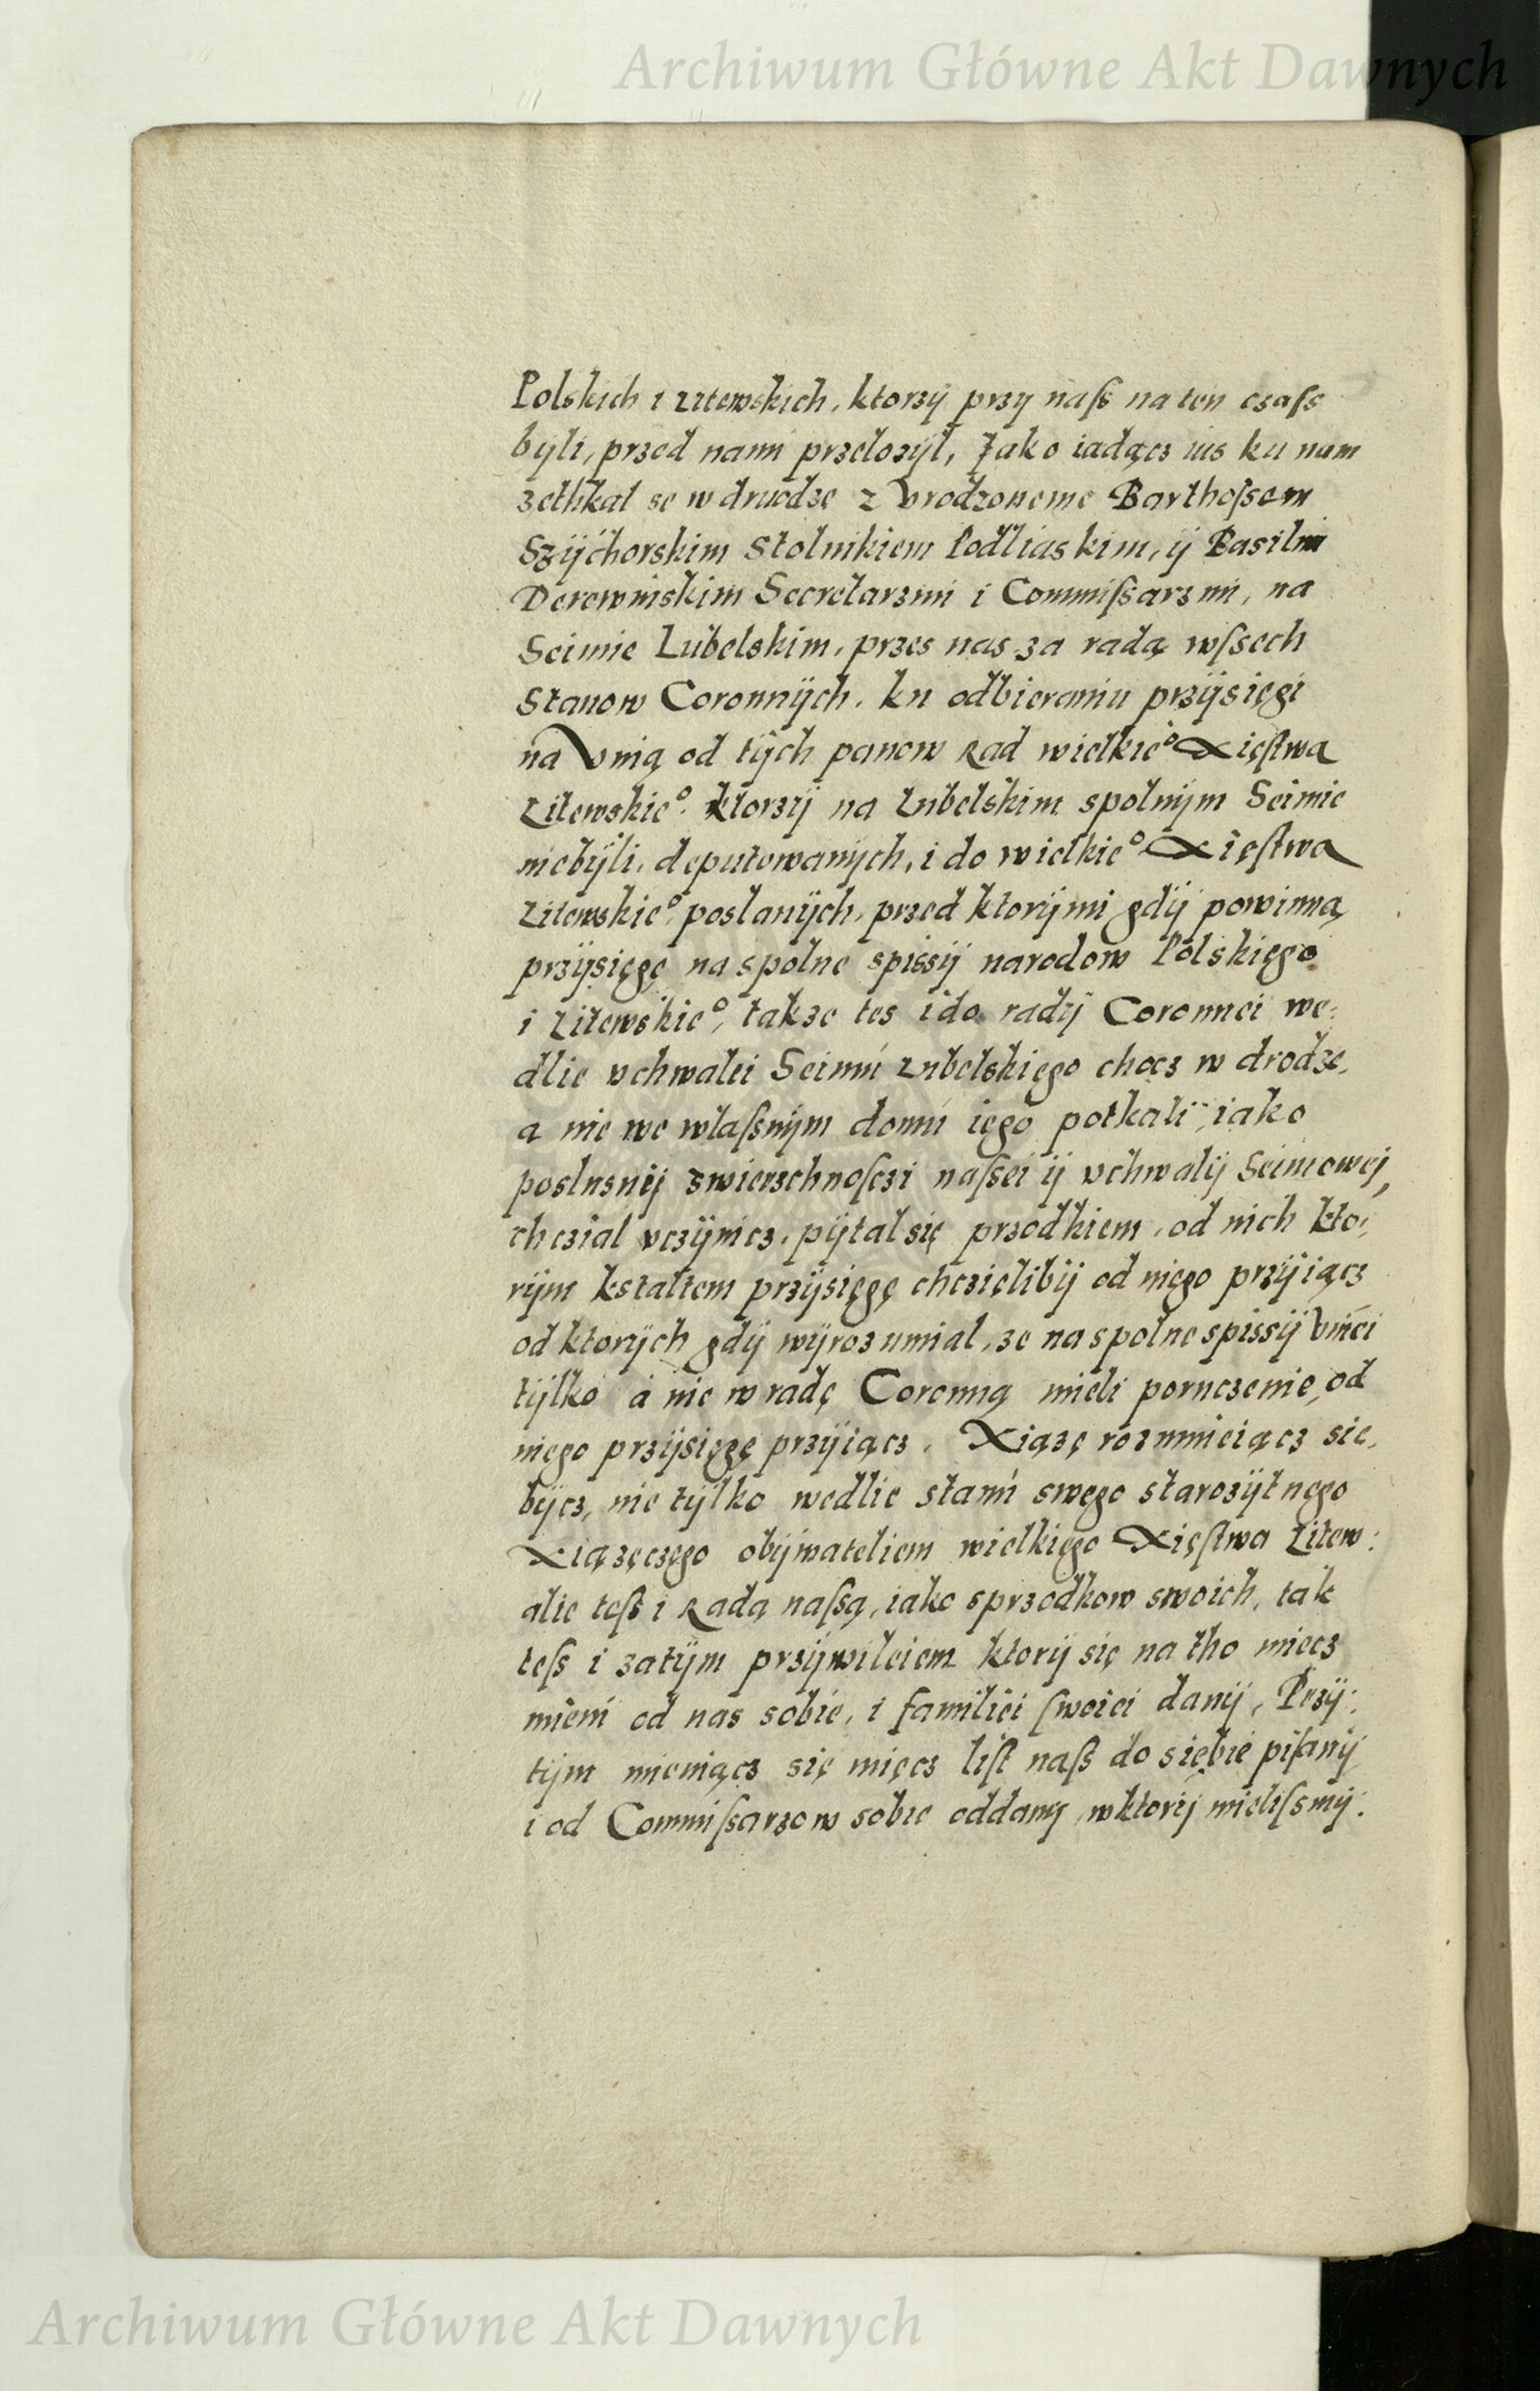 Archiwum Główne Akt Dawnych
Polskich i Litewskich, ktorzÿ przy naſs na ten czaſs
byli, przed nami przelozÿl, Jako iadącz ius ku nam
zethkal se w drodze z Vrodzoneme Barthoſsem
Szÿchorskim Stolnikiem Podliaskim, ÿ Basilim
Derewinskim Secretarzmi i Commiſsarzmi, na
Seimie Lubelskim, przes nas za radą wſsech
Stanow Coronnÿch, ku odbieraniu przÿsięgi
na Vnią od tÿch panow Rad wielkie° Xięſtwa
Litewskie°. ktorzÿ na Lubelskim spolnÿm Seimie
niebÿli, deputowanÿch, i do wielkie° Xięſtwa
Litewskie°, poslanÿch, przed ktorÿmi gdÿ powinną
przÿsięgę na spolne spissÿ narodow Polskięgo
i Litewskie°, takze tes i do radÿ Coronnei we:
dlie vchwalei Seimú Lubelskięgo chocz w drodze,
a nie we wlaſsnÿm domú ięgo potkali, iako
poslusnÿ zwierzchnoſczi naſsei ÿ vchwalÿ Seimowej,
chczial vczÿnicz, pÿtal się przodkiem, od nich kto:
rÿm kstaltem przÿsięgę chczielibÿ od niego przÿiącz
od ktorÿch gdÿ wÿrozumial, ze na spolne spissÿ Vniei
tÿlko á nie w radę Coronną mieli poruczenie, od
niego przÿsięgę przÿiącz. Xiązę rozumieiącz sie,
bÿcz, nie tÿlko wedlie stanú swego starozÿtnego
Xiązęczego obÿwateliem wielkięgo Xięſtwa Litew:
alie teſs i Radą naſsą, iako sprzodkow swoich, tak
teſs i zatÿm przÿwileiem ktorÿ się na tho miecz
mieni od nas sobie, i familiei ſwoiei danÿ, Przÿ:
tÿm mieniącz się mięcz liſt naſs do siębie piſanÿ
i od Commiſsarzow sobie oddany, w ktorÿ mieliſsmÿ:
Archiwum Główne Akt Dawnych